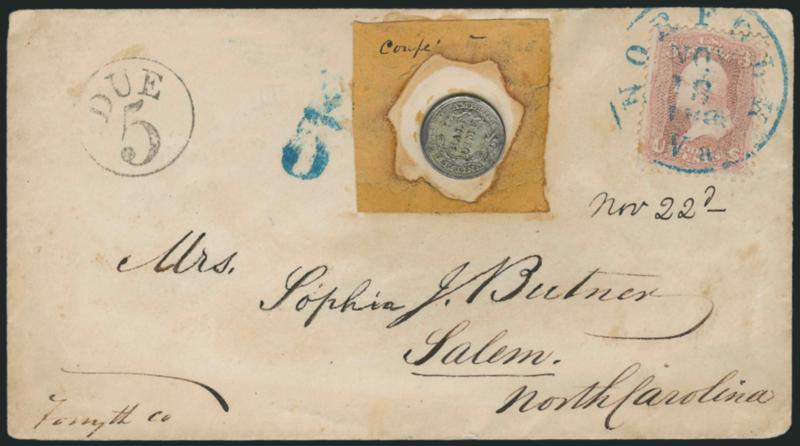 DUE
5
Coupé
HALF
DIME
NORFOLK
NOV
Va
Nov 22d
Mrs.
Sophia J. Butner
Salem.
North Carolina
Forsyth co